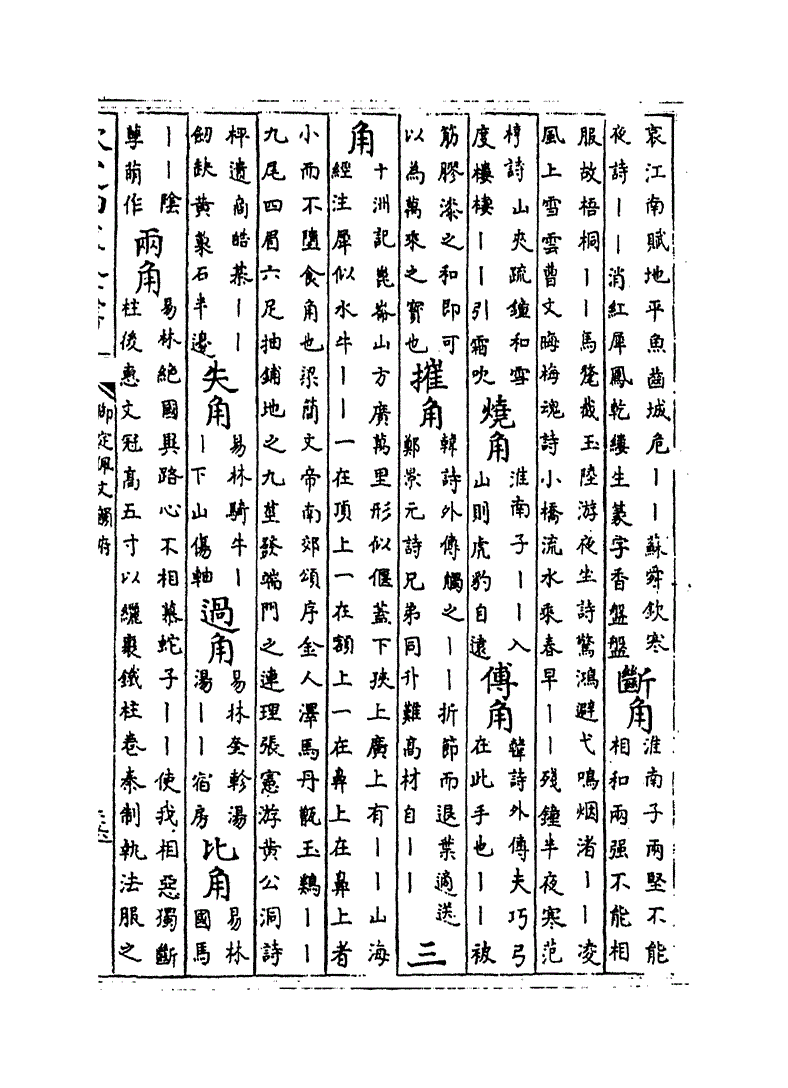 哀江南賦地平魚齒城危丨丨蘇舜欽寒
夜詩丨丨消紅犀鳳乾縷生篆字香盤盤
斷角
淮南子兩堅不能
相和兩强不能相
服故梧桐丨丨馬氂截玉陸游夜坐詩驚鴻避弋鳴烟渚丨丨凌
風上雪雲曹文晦梅魂詩小橋流水乘春早丨丨殘鐘半夜寒范
梈詩山夾疏鐘和雪
度樓棲丨丨引霜吹
燒角
淮南子丨丨入
山則虎豹自遠
傅角
韓詩外傳夫巧弓
在此手也丨丨被
筋膠漆之和即可
以為萬乘之寶也
摧角
韓詩外傳觸之丨丨折節而退葉適送
鄭景元詩兄弟同升難高材自丨丨
三
角
十洲記崑崙山方廣萬里形似偃蓋下狹上廣上有丨丨山海
經注犀似水牛丨丨一在頂上一在額上一在鼻上在鼻上者
小而不墮食角也梁簡文帝南郊頌序金人澤馬丹甑玉鷄丨丨
九尾四眉六足抽鋪地之九莖發端門之連理張憲游黄公洞詩
枰遺商皓棊丨丨
劒缺黄裳石半邊
失角
易林騎牛丨
丨下山傷軸
過角
易林登軫湯
湯丨丨宿房
比角
易林
國馬
丨丨陰
孽萌作
兩角
易林絶國異路心不相慕蛇子丨丨使我相惡獨斷
柱後惠文冠高五寸以纚裹鐵柱卷秦制執法服之
御定佩文韻府